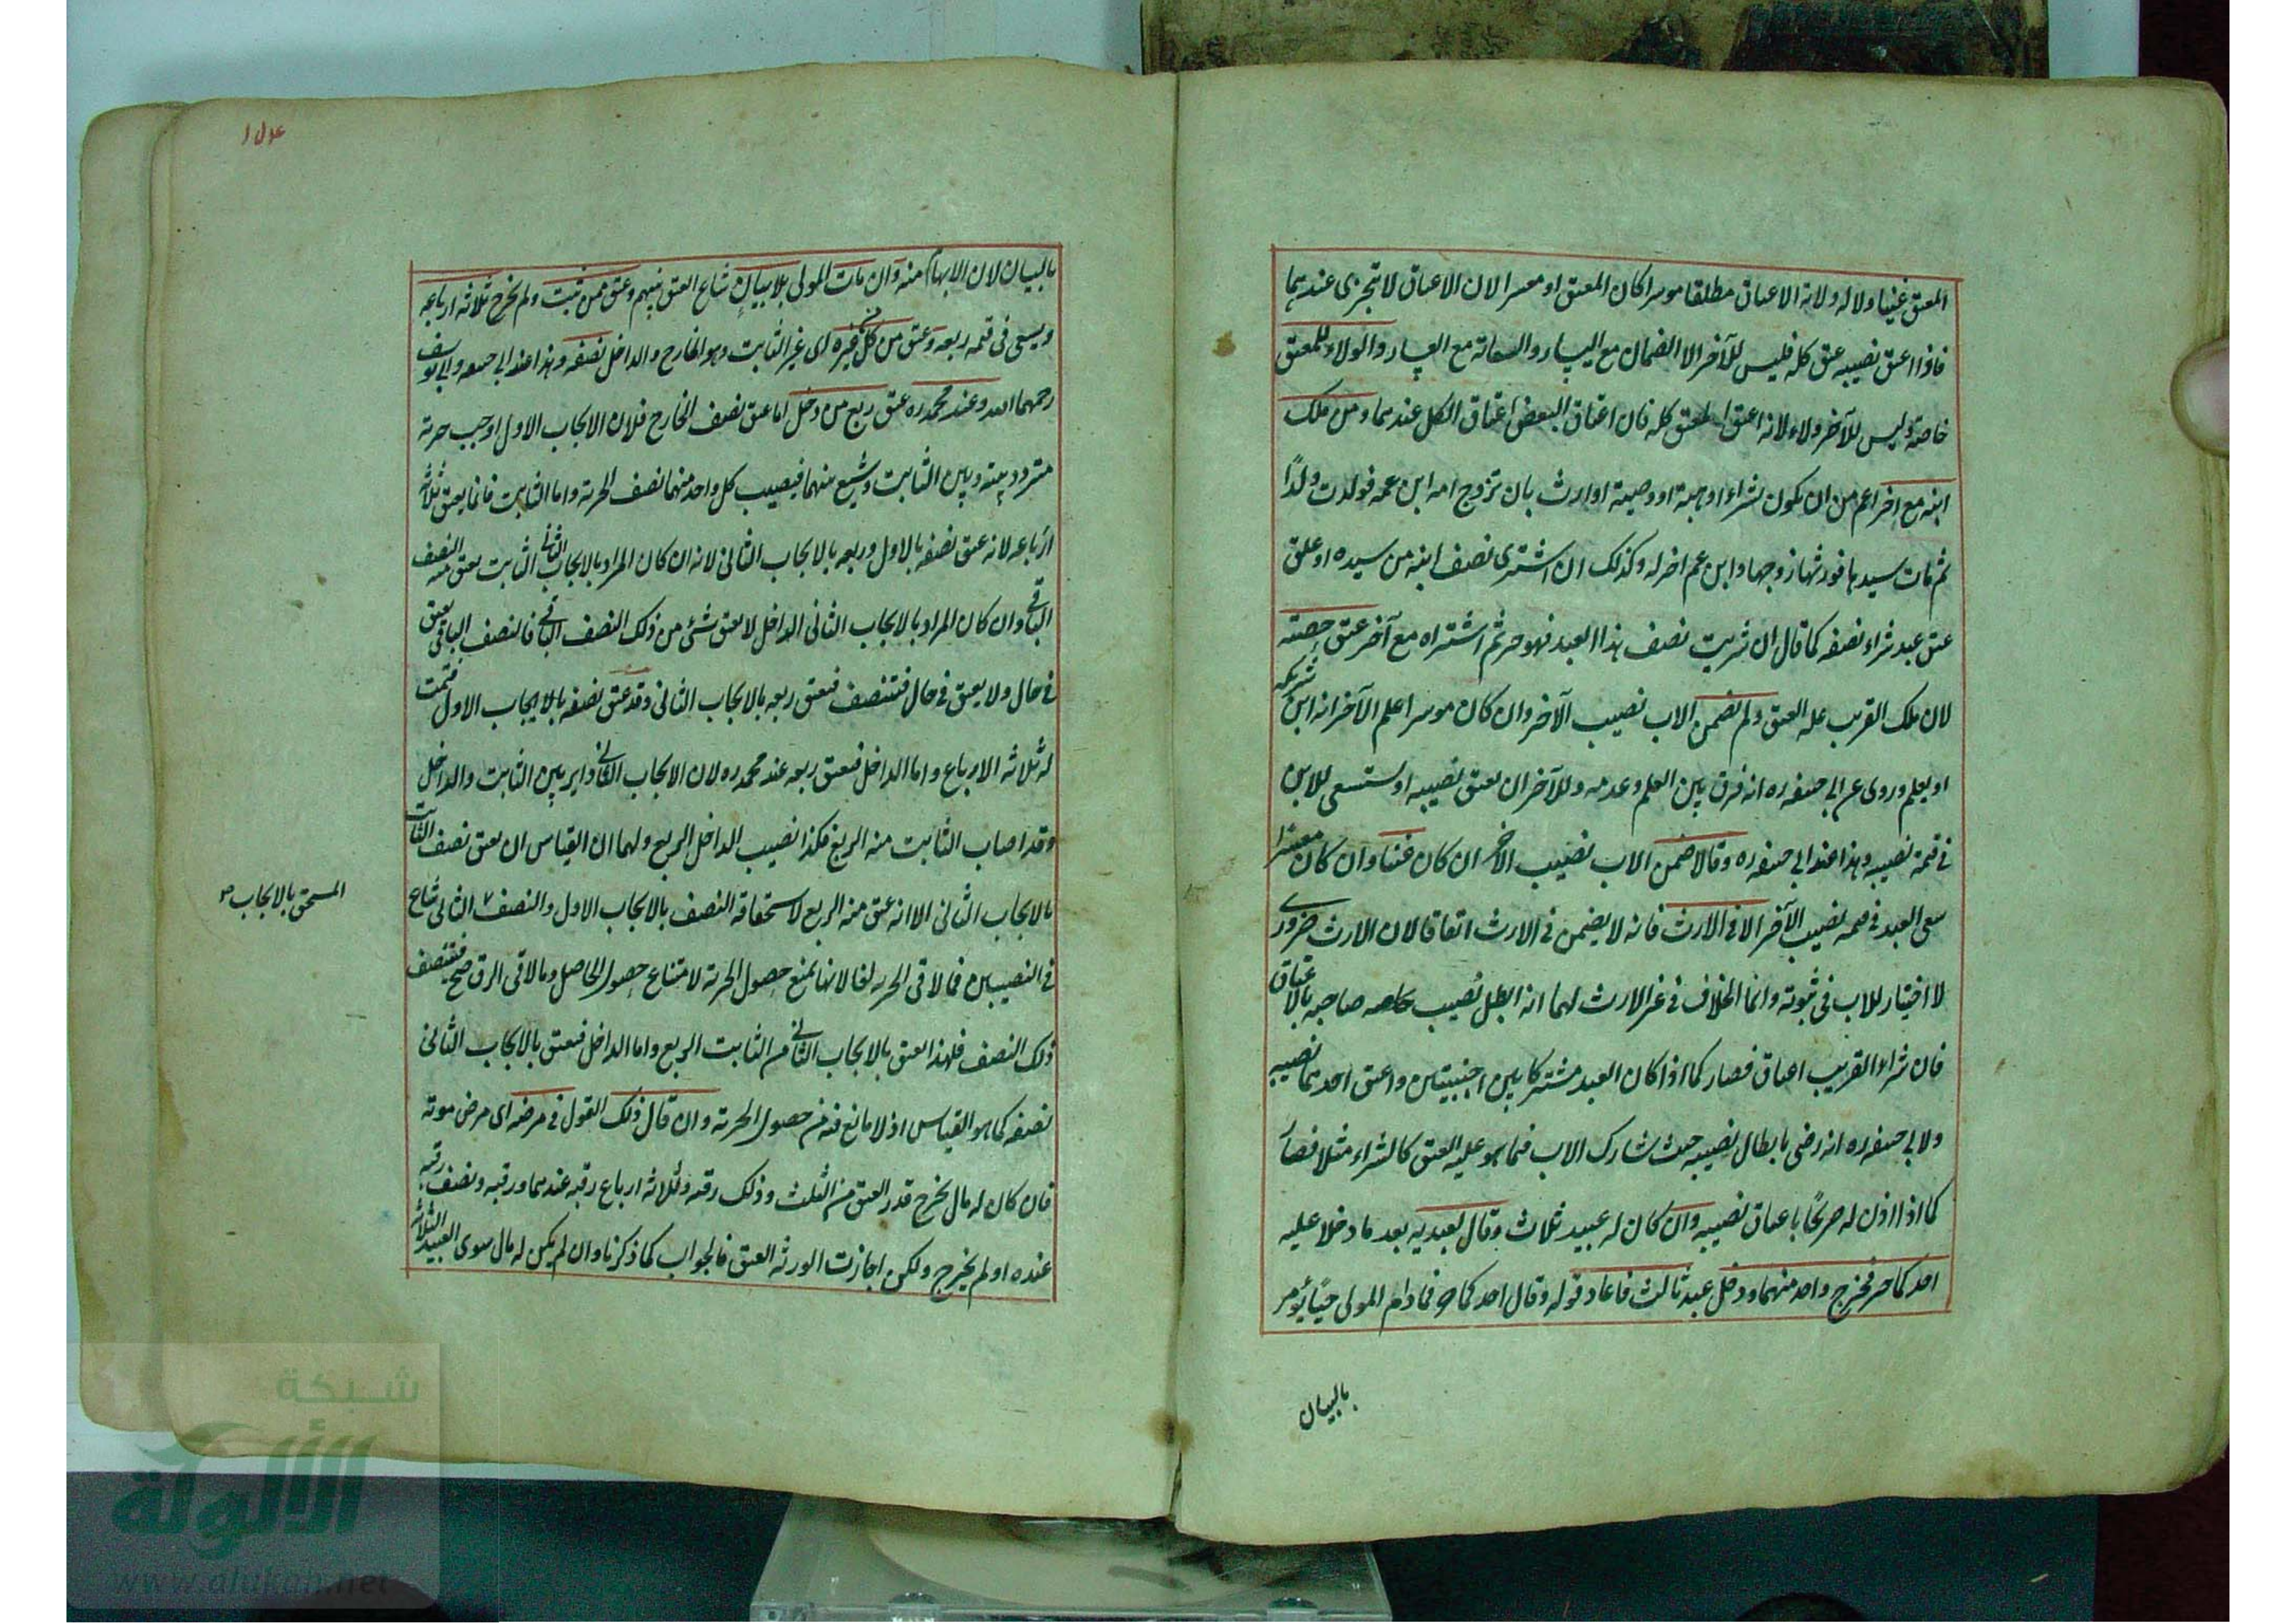 المعتق غنيا ولا له ولاية الاعتاق مطلقا موسرا كان المعتق او معسرا لان الاعتاق لا تتجزى عندهما
فاذا اعتق نصيبه عتق كله فليس للآخر الا الضمان مع اليسار والسعاية مع العسار والولاء للمعتق
خاصة وليس للآخر ولاء لانه اعتق كله فان اعتاق البعض اعتاق الكل عندهما ومن ملك
ابنه مع اخر اعم من ان يكون بشراء او هبة او وصية او ارث بان تزوج امة ابن عمه فولدت ولدًا
ثم مات سيدها فورثها زوجها وابن عم اخر له وكذلك ان اشترى نصف ابنه من سيده او علق
عتق عبد بشراء نصفه كما قال ان شريت نصف هذا العبد فهو حر ثم اشتراه مع آخر عتق حصته
لان ملك القريب علة العتق ولم يضمن الاب نصيب الآخر وان كان موسرا علم الآخر انه ابن شريكه
او يعلم وروى عن ابي حنيفه ره انه فرق بين العلم وعدمه وللآخر ان يعتق نصيبه او يستسعى للابن
في قيمة نصيبه وهذا عند ابي حنيفه ره وقالا ضمن الاب نصيب الآخر ان كان غنيا وان كان معسرا
سعى العبد في قيمه نصيب الآخر الا في الارث فانه لا يضمن في الارث اتفاقا لان الارث ضروري
لا اختيار للاب في ثبوته وانما الخلاف في غير الارث لهما انه ابطل نصيب صاحبه بالاعتاق
فان شراء القريب اعتاق فصار كما اذا كان العبد مشتركا بين اجنبيين واعتق احدهما نصيبه
ولابي حنيفه ره انه رضى بابطال نصيبه حيث شارك الاب فيما هو علة العتق كالشراء مثلا فصار
كما اذا اذن له صريحًا باعتاق نصيبه وان كان له عبيد ثلاث وقال لعبديه بعد ما دخلا عليه
احدكما حر فخرج واحد منهما ودخل عبد ثالث فاعاد قوله وقال احدكما حر فما دام المولى حيًا يؤمر
بالبيان
بالبيان لان الابهام منه وان مات المولى بلا بيانٍ شاع العتق بينهم وعتق ممن ثبت ولم يخرج ثلاثة ارباعه
ويسعى في قيمة ربعه وعتق من كل غيره اى غير الثابت وهو الخارج والداخل نصفه وهذا عند ابي حنيفه وابي يوسف
رحمهما الله وعند محمد ره عتق ربع من دخل اما عتق نصف الخارج فلان الايجاب الاول اوجب حرية
متردد بينه وبين الثابت وشيع بينهما فيصيب كل واحد منهما نصف الحرية واما الثابت فانما يعتق ثلاثة
ارباعه لانه عتق نصفه بالاول وربعه بالايجاب الثاني لانه ان كان المراد بالايجاب الثاني الثابت يعتق منه النصف
الباقي وان كان المراد بالايجاب الثاني الداخل لا يعتق شئ من ذلك النصف الباقي فالنصف الباقي يعتق
في حال ولا يعتق في حال فتنصف فيعتق ربعه بالايجاب الثاني وقد عتق نصفه بالايجاب الاول فتمت
له ثلاثة الارباع واما الداخل فيعتق ربعه عند محمد ره لان الايجاب الثاني داير بين الثابت والداخل
وقد اصاب الثابت منه الربع فكذا نصيب الداخل الربع ولهما ان القياس ان يعتق نصف الثابت
بالايجاب الثاني الا انه عتق منه الربع لاستحقاقه النصف بالايجاب الاول والنصف الثاني شاع
المستحق بالايجاب
في النصيبين فما لاقى الحرية لغا لانها تمنع حصول الحرية لامتناع حصول الحاصل وما لاقى الرق صح فتنصف
ذلك النصف فلهذا العتق بالايجاب الثاني من الثابت الربع واما الداخل فيعتق بالايجاب الثاني
نصفه كما هو القياس اذ لا مانع فيه من حصول الحرية وان قال ذلك القول في مرضه اى مرض موته
فان كان له مال يخرج قدر العتق من الثلث وذلك رقبه وثلاثة ارباع رقبه عندهما ورقبه ونصف رقبه
عنده او لم يخرج ولكن اجازت الورثة العتق فالجواب كما ذكرنا وان لم يكن له مال سوى العبيد الثلاثة
شبكة
الألوكة
www.alukah.net